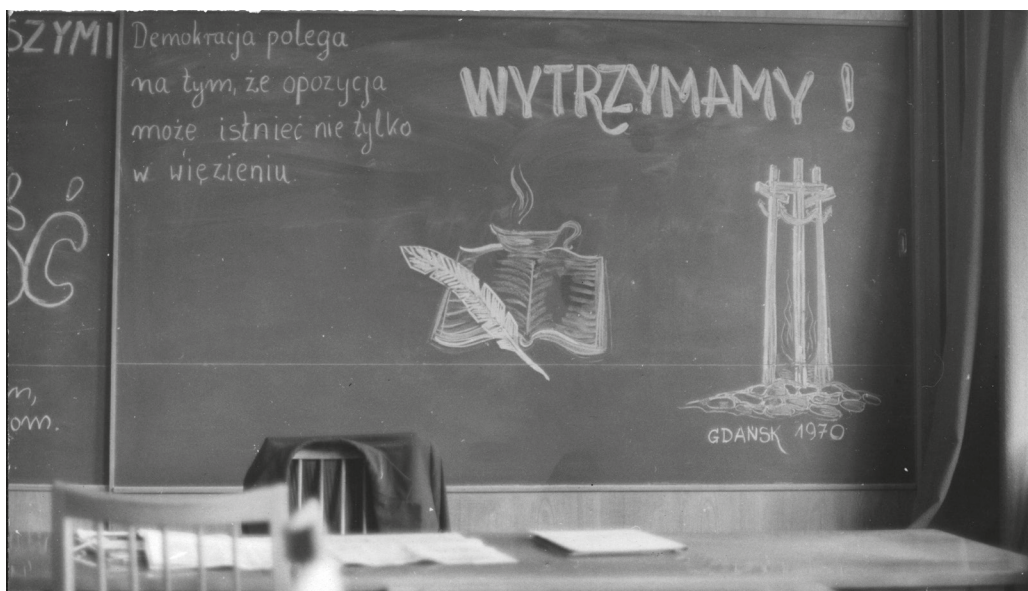 SZYMI
ŚĆ
m,
om.
Demokracja polega
na tym, że opozycja
może istnieć nie tylko
w więzieniu.
WYTRZYMAMY !
GDAŃSK 1970